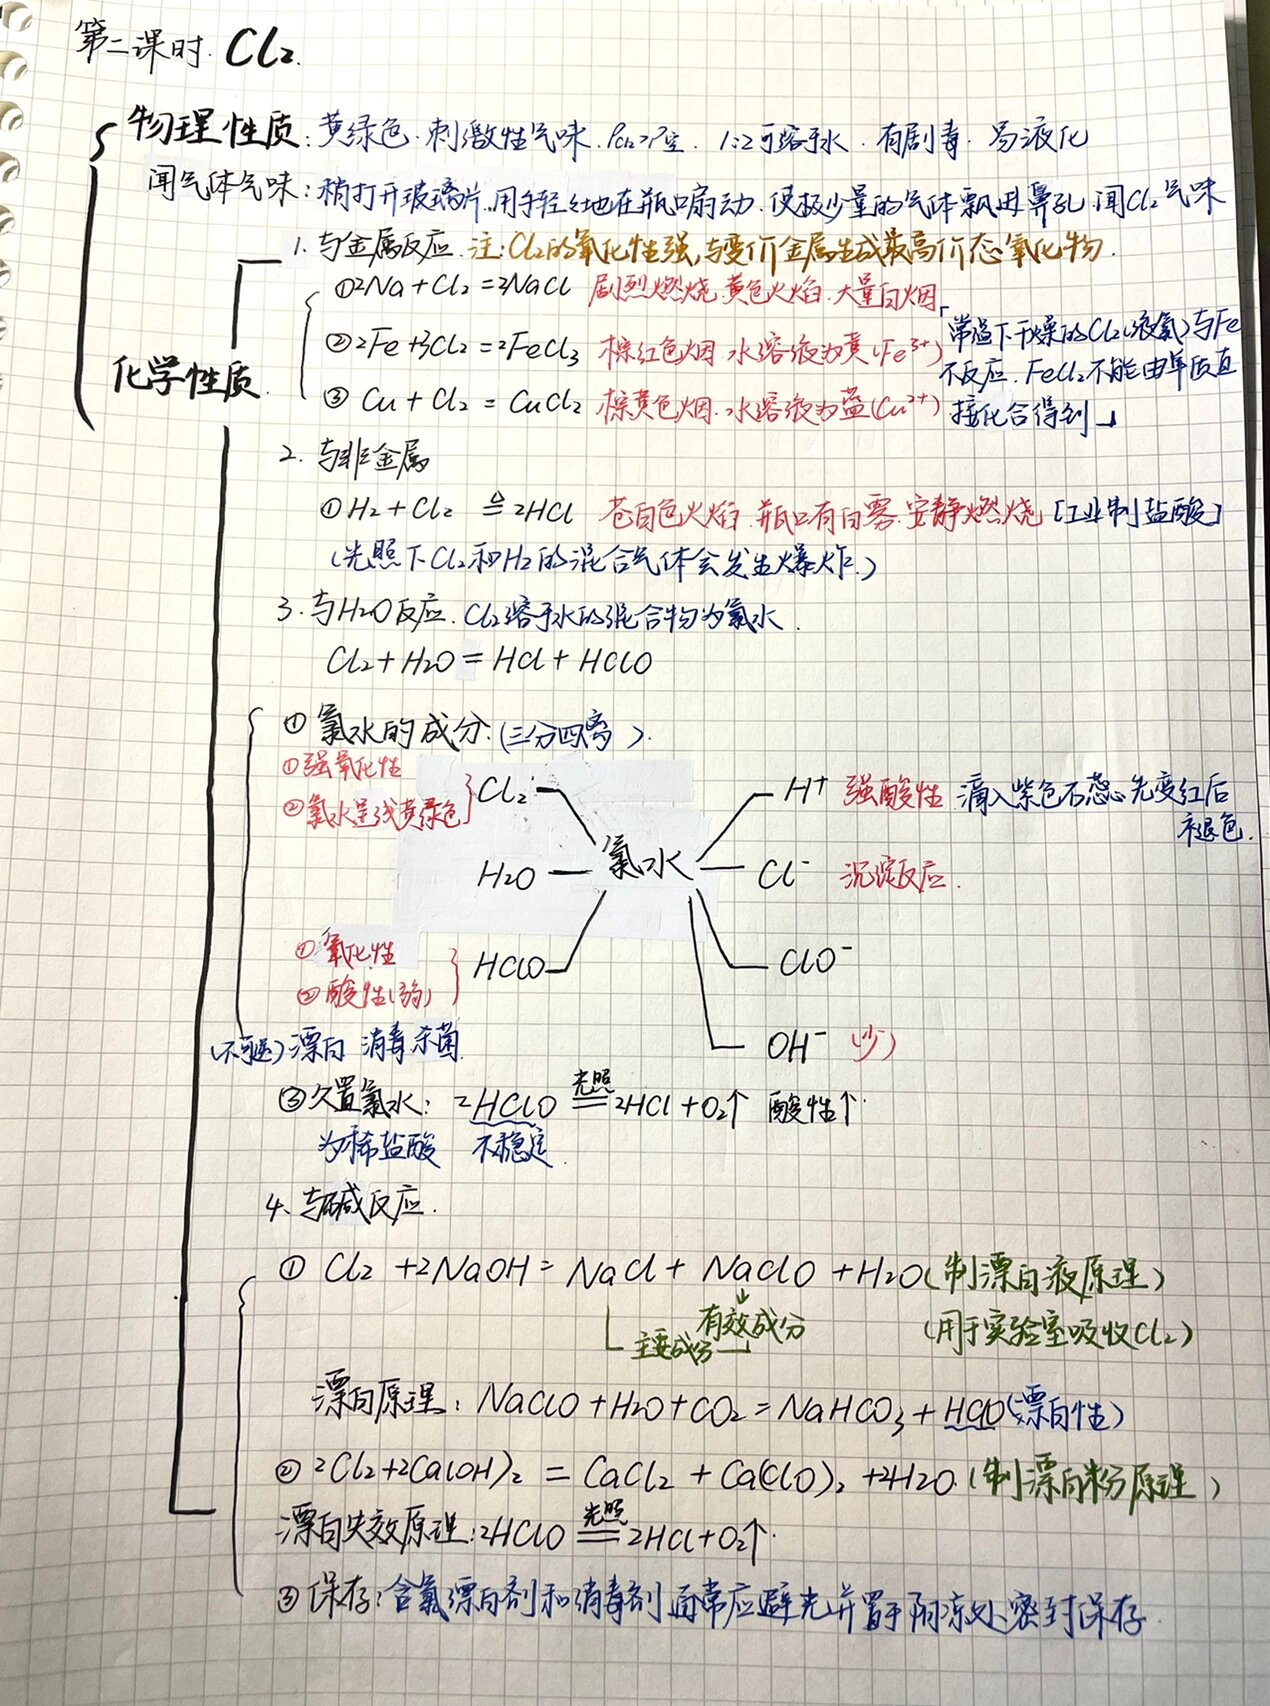 第二课时. Cl₂.
物理性质: 黄绿色. 刺激性气味. ρcl₂>ρ空. 1:2可溶于水. 有剧毒. 易液化
闻气体气味: 稍打开玻璃片, 用手轻轻地在瓶口扇动. 使极少量的气体飘进鼻孔. 闻Cl₂气味
化学性质.
1. 与金属反应. 注: Cl₂的氧化性强, 与变价金属生成最高价态氧化物.
①2Na+Cl₂=2NaCl 剧烈燃烧. 黄色火焰. 大量白烟
②2Fe+3Cl₂=2FeCl₃ 棕红色烟. 水溶液为黄(Fe³⁺)
③ Cu+Cl₂=CuCl₂ 棕黄色烟. 水溶液为蓝(Cu²⁺)
「常温下干燥的Cl₂(液氯)与Fe
不反应. FeCl₂不能由单质直
接化合得到」
2. 与非金属
①H₂+Cl₂ ≜ 2HCl 苍白色火焰. 瓶口有白雾. 安静燃烧 [工业制盐酸]
(光照下Cl₂和H₂的混合气体会发生爆炸.)
3. 与H₂O反应. Cl₂溶于水的混合物为氯水.
Cl₂+H₂O=HCl+HClO
① 氯水的成分: (三分四离).
①强氧化性
②氯水呈浅黄绿色
Cl₂
H₂O
①氧化性
②酸性(弱)
HClO
(不可逆)漂白 消毒 杀菌
氯水
H⁺ 强酸性 滴入紫色石蕊. 先变红后
褪色.
Cl⁻ 沉淀反应.
ClO⁻
OH⁻ (少)
③久置氯水: 2HClO 光照 2HCl+O₂↑ 酸性↑.
为稀盐酸 不稳定.
4. 与碱反应.
① Cl₂+2NaOH=NaCl+NaClO+H₂O(制漂白液原理)
有效成分 (用于实验室吸收Cl₂)
主要成分
漂白原理: NaClO+H₂O+CO₂=NaHCO₃+HClO(漂白性)
② 2Cl₂+2Ca(OH)₂=CaCl₂+Ca(ClO)₂+2H₂O. (制漂白粉原理)
漂白失效原理: 2HClO 光照 2HCl+O₂↑.
③保存: 含氯漂白剂和消毒剂通常应避光并置于阴凉处密封保存.